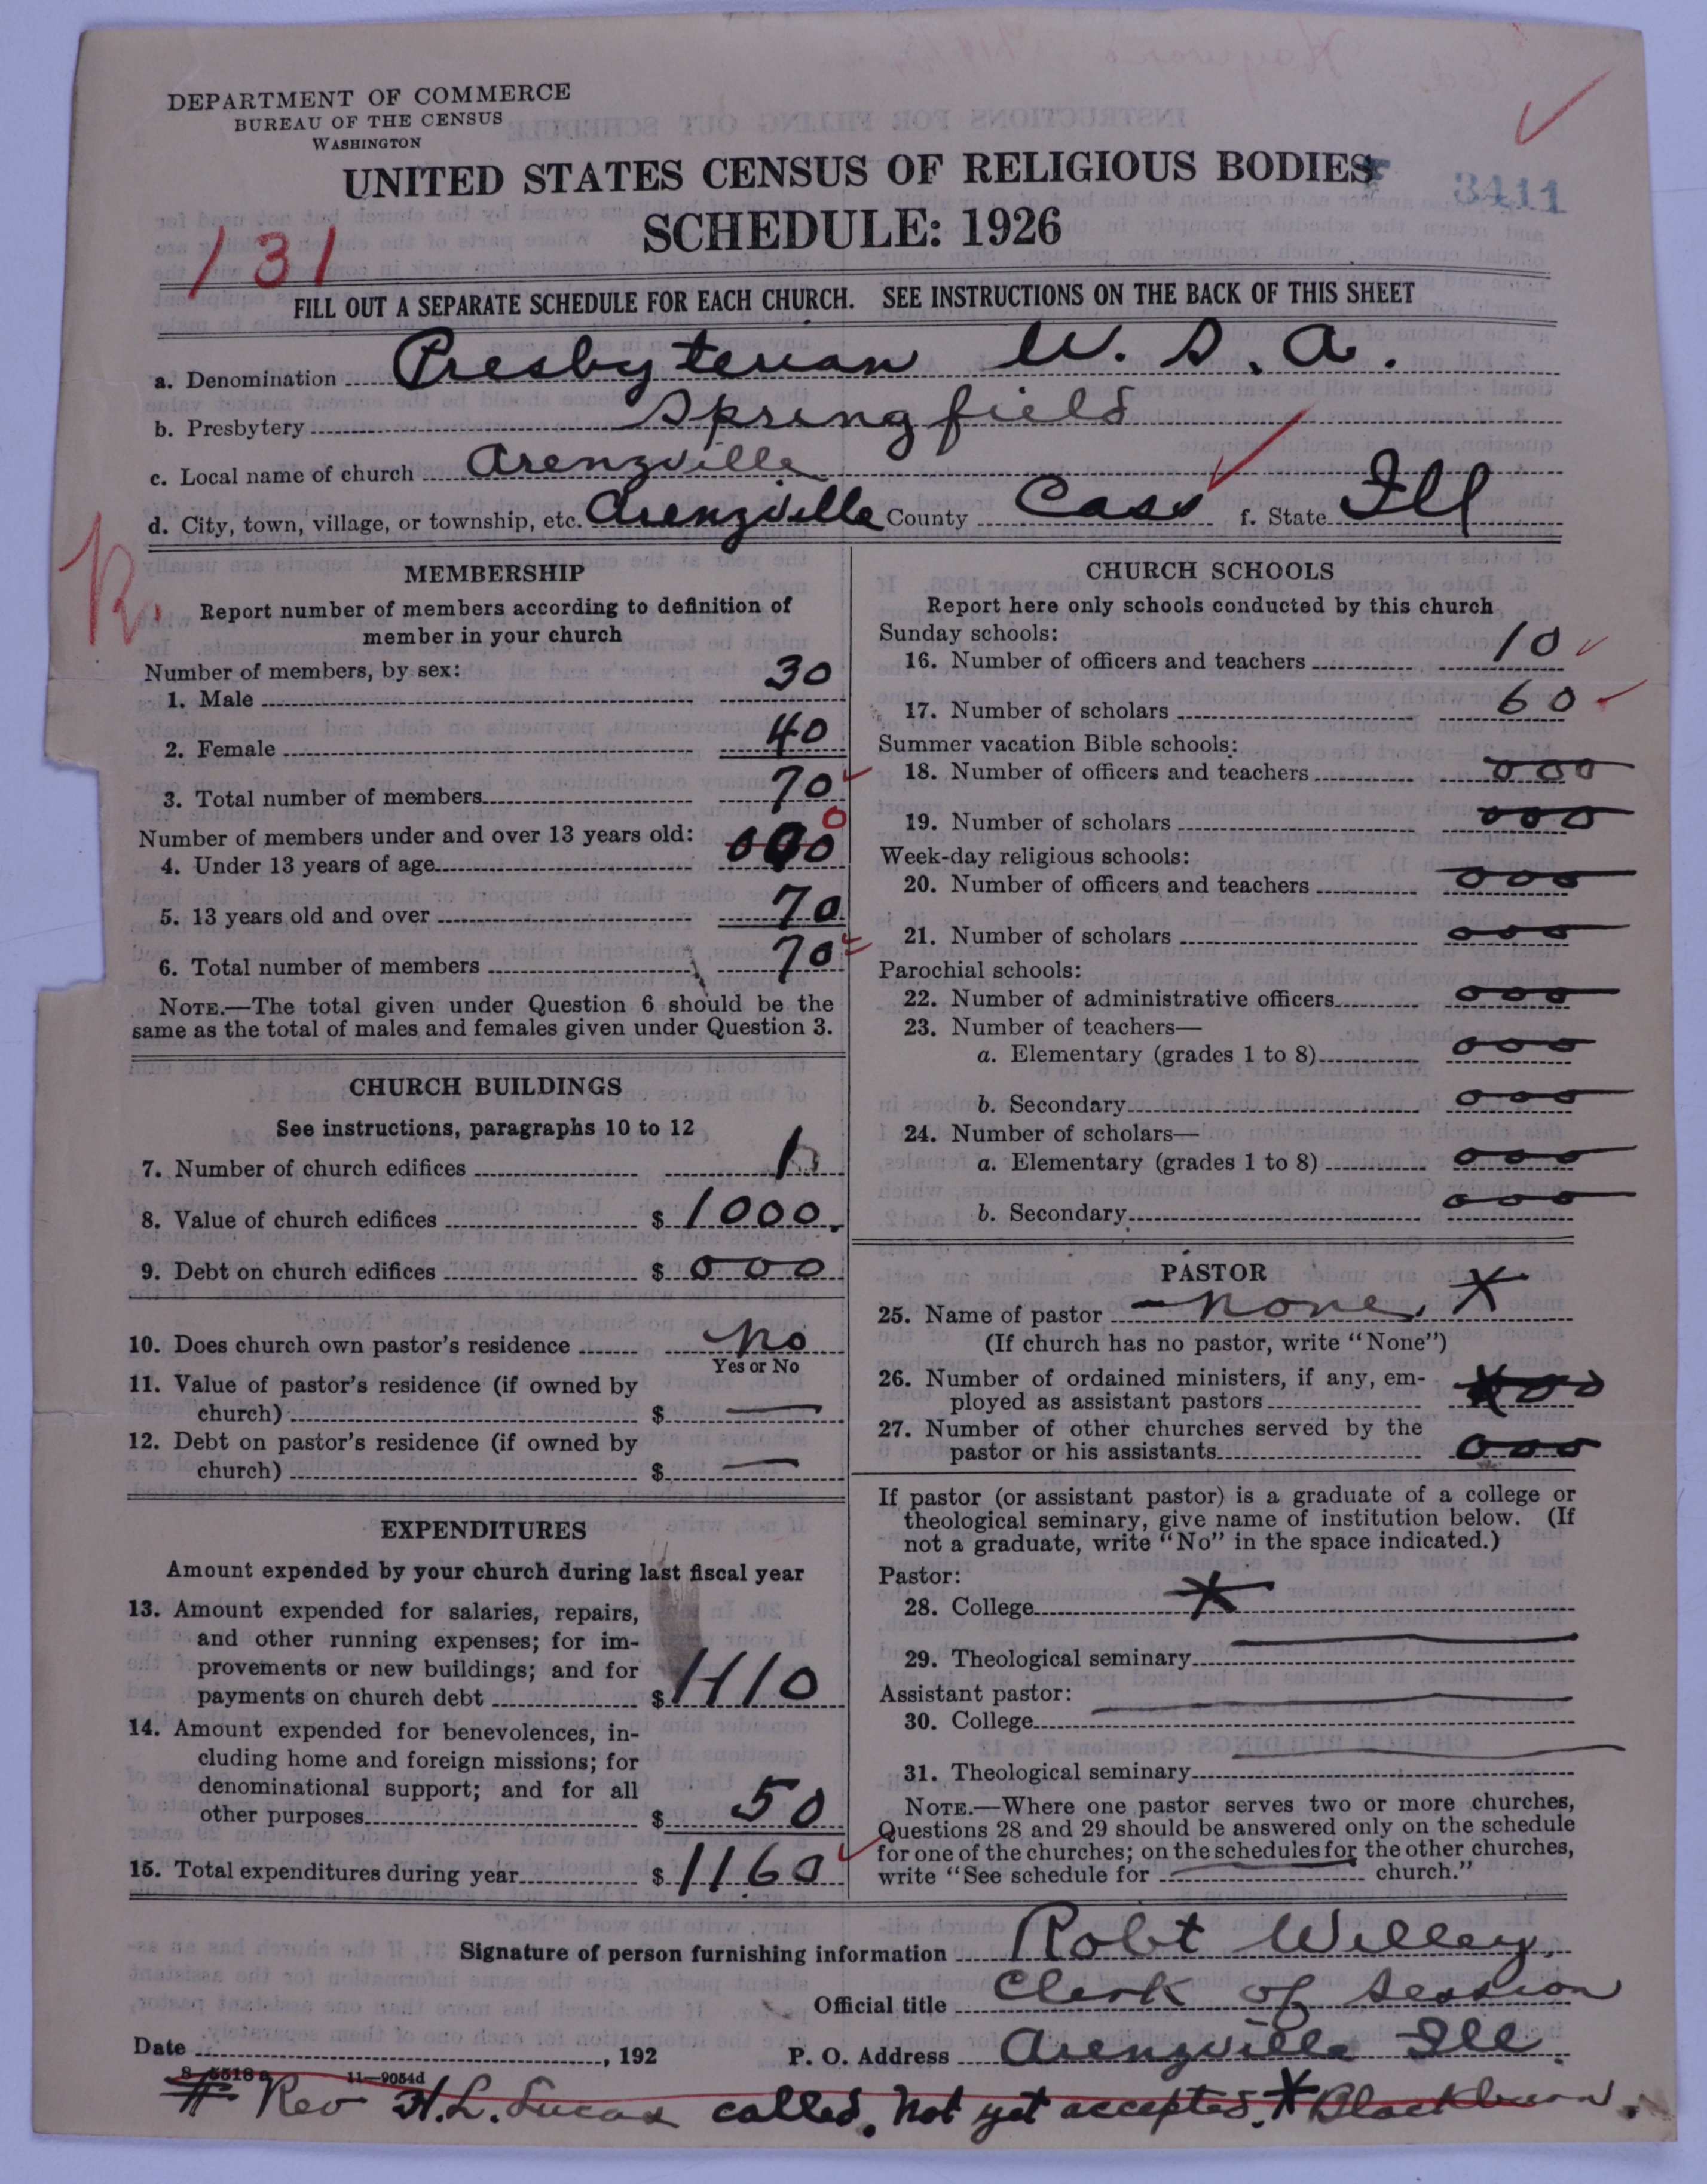 DEPARTMENT OF COMMERCE
BUREAU OF THE CENSUS
WASHINGTON
UNITED STATES CENSUS OF RELIGIOUS BODIES
3411
SCHEDULE: 1926
131
FILL OUT A SEPARATE SCHEDULE FOR EACH CHURCH. SEE INSTRUCTIONS ON THE BACK OF THIS SHEET
a. Denomination Presbyterian U. S. A.
b. Presbytery Springfield
c. Local name of church Arenzville
d. City, town, village, or township, etc. Arenzville County Cass f. State Ill
MEMBERSHIP
Report number of members according to definition of
member in your church
Number of members, by sex:
1. Male 30
2. Female 40
3. Total number of members 70
Number of members under and over 13 years old:
4. Under 13 years of age 000 0
5. 13 years old and over 70
6. Total number of members 70
NOTE.—The total given under Question 6 should be the
same as the total of males and females given under Question 3.
CHURCH BUILDINGS
See instructions, paragraphs 10 to 12
7. Number of church edifices 1
8. Value of church edifices $ 1000.
9. Debt on church edifices $ 000
10. Does church own pastor's residence No
Yes or No
11. Value of pastor's residence (if owned by
church) $ —
12. Debt on pastor's residence (if owned by
church) $ —
EXPENDITURES
Amount expended by your church during last fiscal year
13. Amount expended for salaries, repairs,
and other running expenses; for im-
provements or new buildings; and for
payments on church debt $ 1110
14. Amount expended for benevolences, in-
cluding home and foreign missions; for
denominational support; and for all
other purposes $ 50
15. Total expenditures during year $ 1160
CHURCH SCHOOLS
Report here only schools conducted by this church
Sunday schools:
16. Number of officers and teachers 10
17. Number of scholars 60
Summer vacation Bible schools:
18. Number of officers and teachers 000
19. Number of scholars 000
Week-day religious schools:
20. Number of officers and teachers 000
21. Number of scholars 000
Parochial schools:
22. Number of administrative officers 000
23. Number of teachers—
a. Elementary (grades 1 to 8) 000
b. Secondary 000
24. Number of scholars—
a. Elementary (grades 1 to 8) 000
b. Secondary 000
PASTOR
25. Name of pastor — none. *
(If church has no pastor, write "None")
26. Number of ordained ministers, if any, em-
ployed as assistant pastors 000
27. Number of other churches served by the
pastor or his assistants 000
If pastor (or assistant pastor) is a graduate of a college or
theological seminary, give name of institution below. (If
not a graduate, write "No" in the space indicated.)
Pastor:
28. College *
29. Theological seminary
Assistant pastor:
30. College
31. Theological seminary
NOTE.—Where one pastor serves two or more churches,
Questions 28 and 29 should be answered only on the schedule
for one of the churches; on the schedules for the other churches,
write "See schedule for church."
Signature of person furnishing information Robt Willey,
Official title Clerk of Session
Date , 192 P. O. Address Arenzville Ill.
8—5518 a 11—9054d
# Rev H. L. Lucas called. Not yet accepted. * Blackburn.